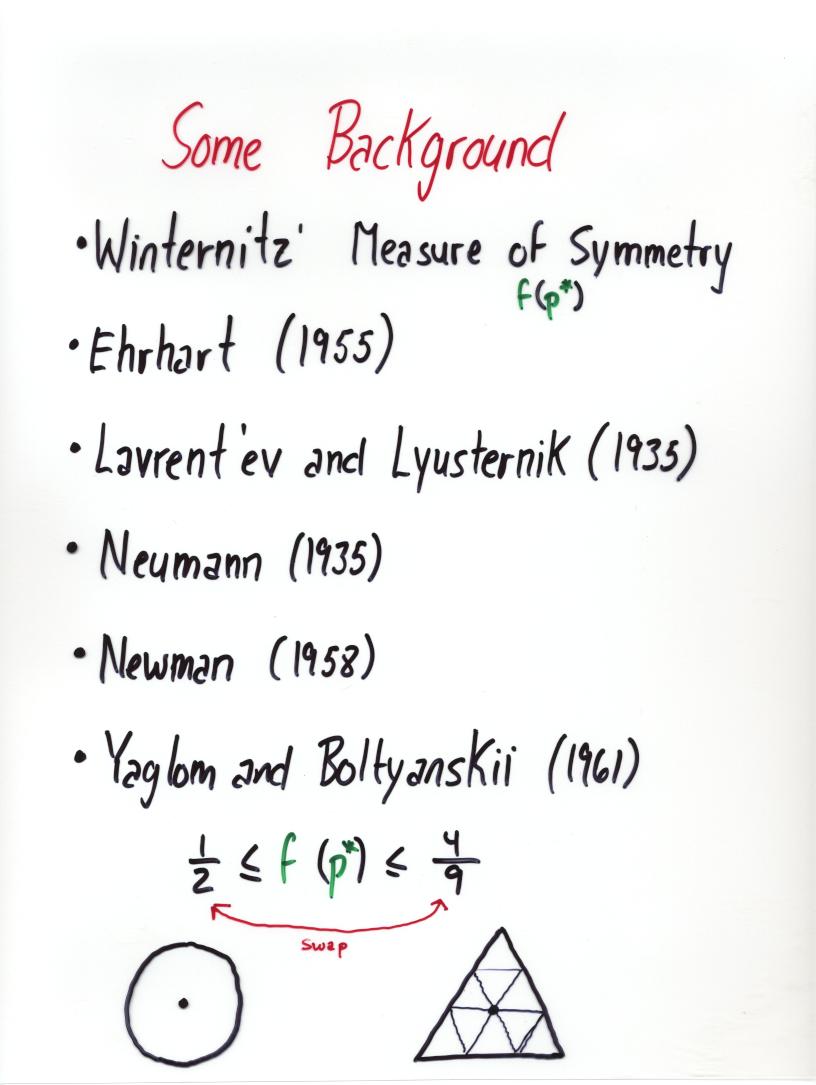 Some Background
•Winternitz' Measure of Symmetry
f(p*)
•Ehrhart (1955)
•Lavrent'ev and Lyusternik (1935)
•Neumann (1935)
•Newman (1958)
•Yaglom and Boltyanskii (1961)
1/2 ≤ f(p*) ≤ 4/9
swap